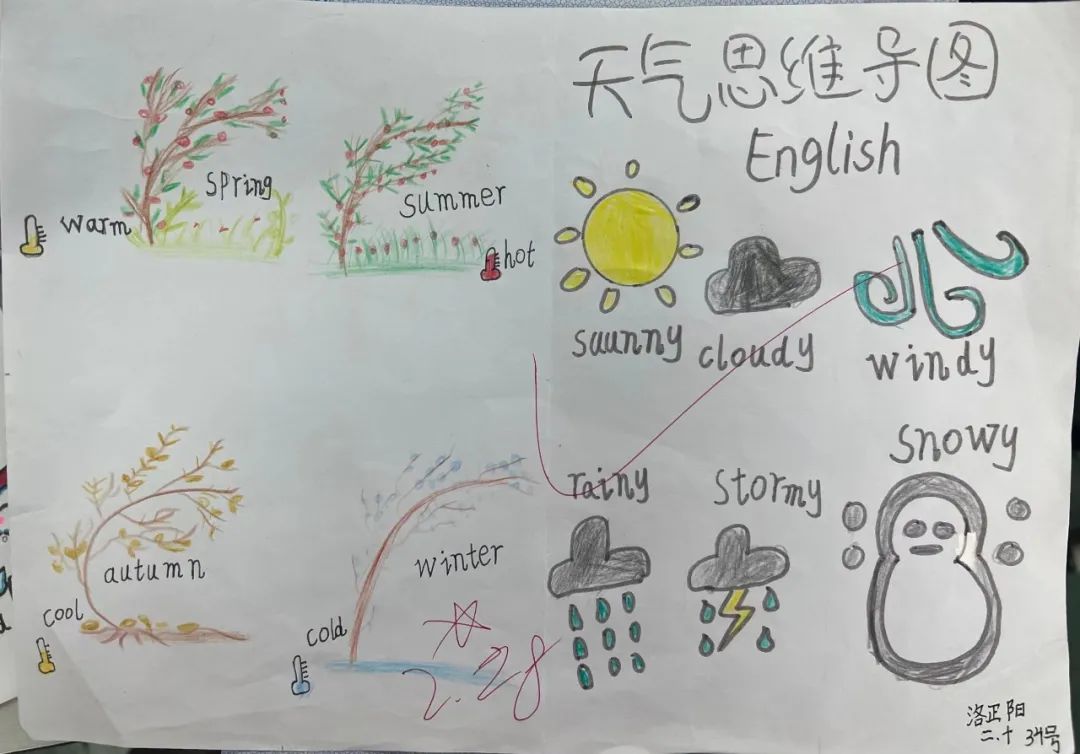 天气思维导图
English
spring
warm
summer
hot
saunny
cloudy
windy
autumn
cool
winter
cold
rainy
stormy
snowy
2.28
洛正阳
二.十 34号